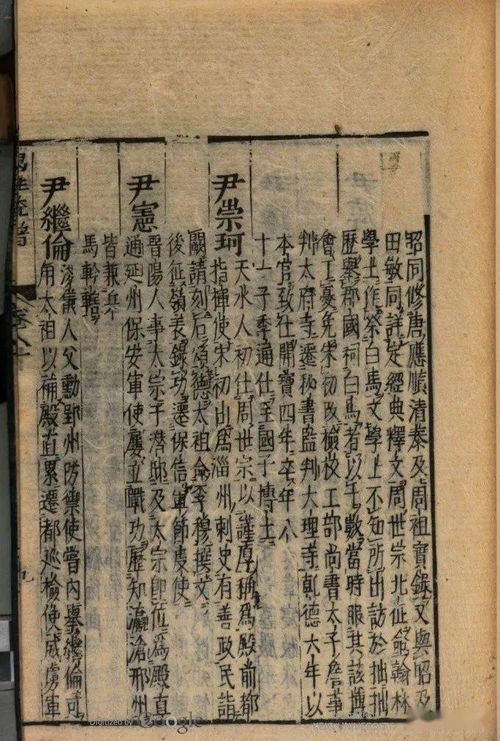 昭同修唐應順清泰及周祖實錄又與昭及
田敏同詳定經典釋文周世宗北征命翰林
學士作祭白馬文學士不知所出訪於拙拙
歷舉郡國祠白馬者以十數當時服其該博
會丁憂免宋初改檢校工部尚書太子詹事
判太府寺遷秘書監判大理寺乾德六年以
本官致仕開寶四年卒年八
十一子季通仕至國子博士
尹崇珂 天水人初仕周世宗以謹厚稱爲殿前都
指揮使宋初出爲淄州刺史有善政民詣
闕請刻石頌德太祖命李穆撰文
後征嶺表錄功遷保信軍節度使
尹憲 晉陽人事太宗于潛邸及太宗即位爲殿直
通延州保安軍使屢立戰功歷知瀛滄邢州
皆兼兵
馬鈐轄
尹繼倫 浚儀人父勳郢州防禦使嘗內舉繼倫可
用太祖以補殿直累遷都巡檢使威虜軍
Digitized by Google